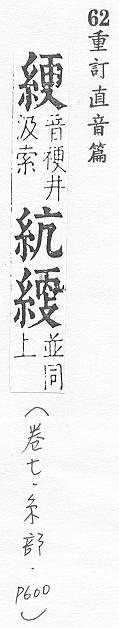 62重訂直音篇
綆音梗井汲索䋁𦃌並同上
(卷七.糸部.P600)